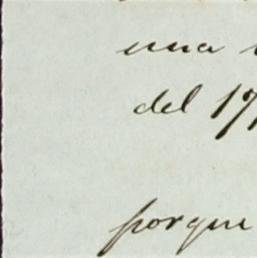 una
del 17
porque